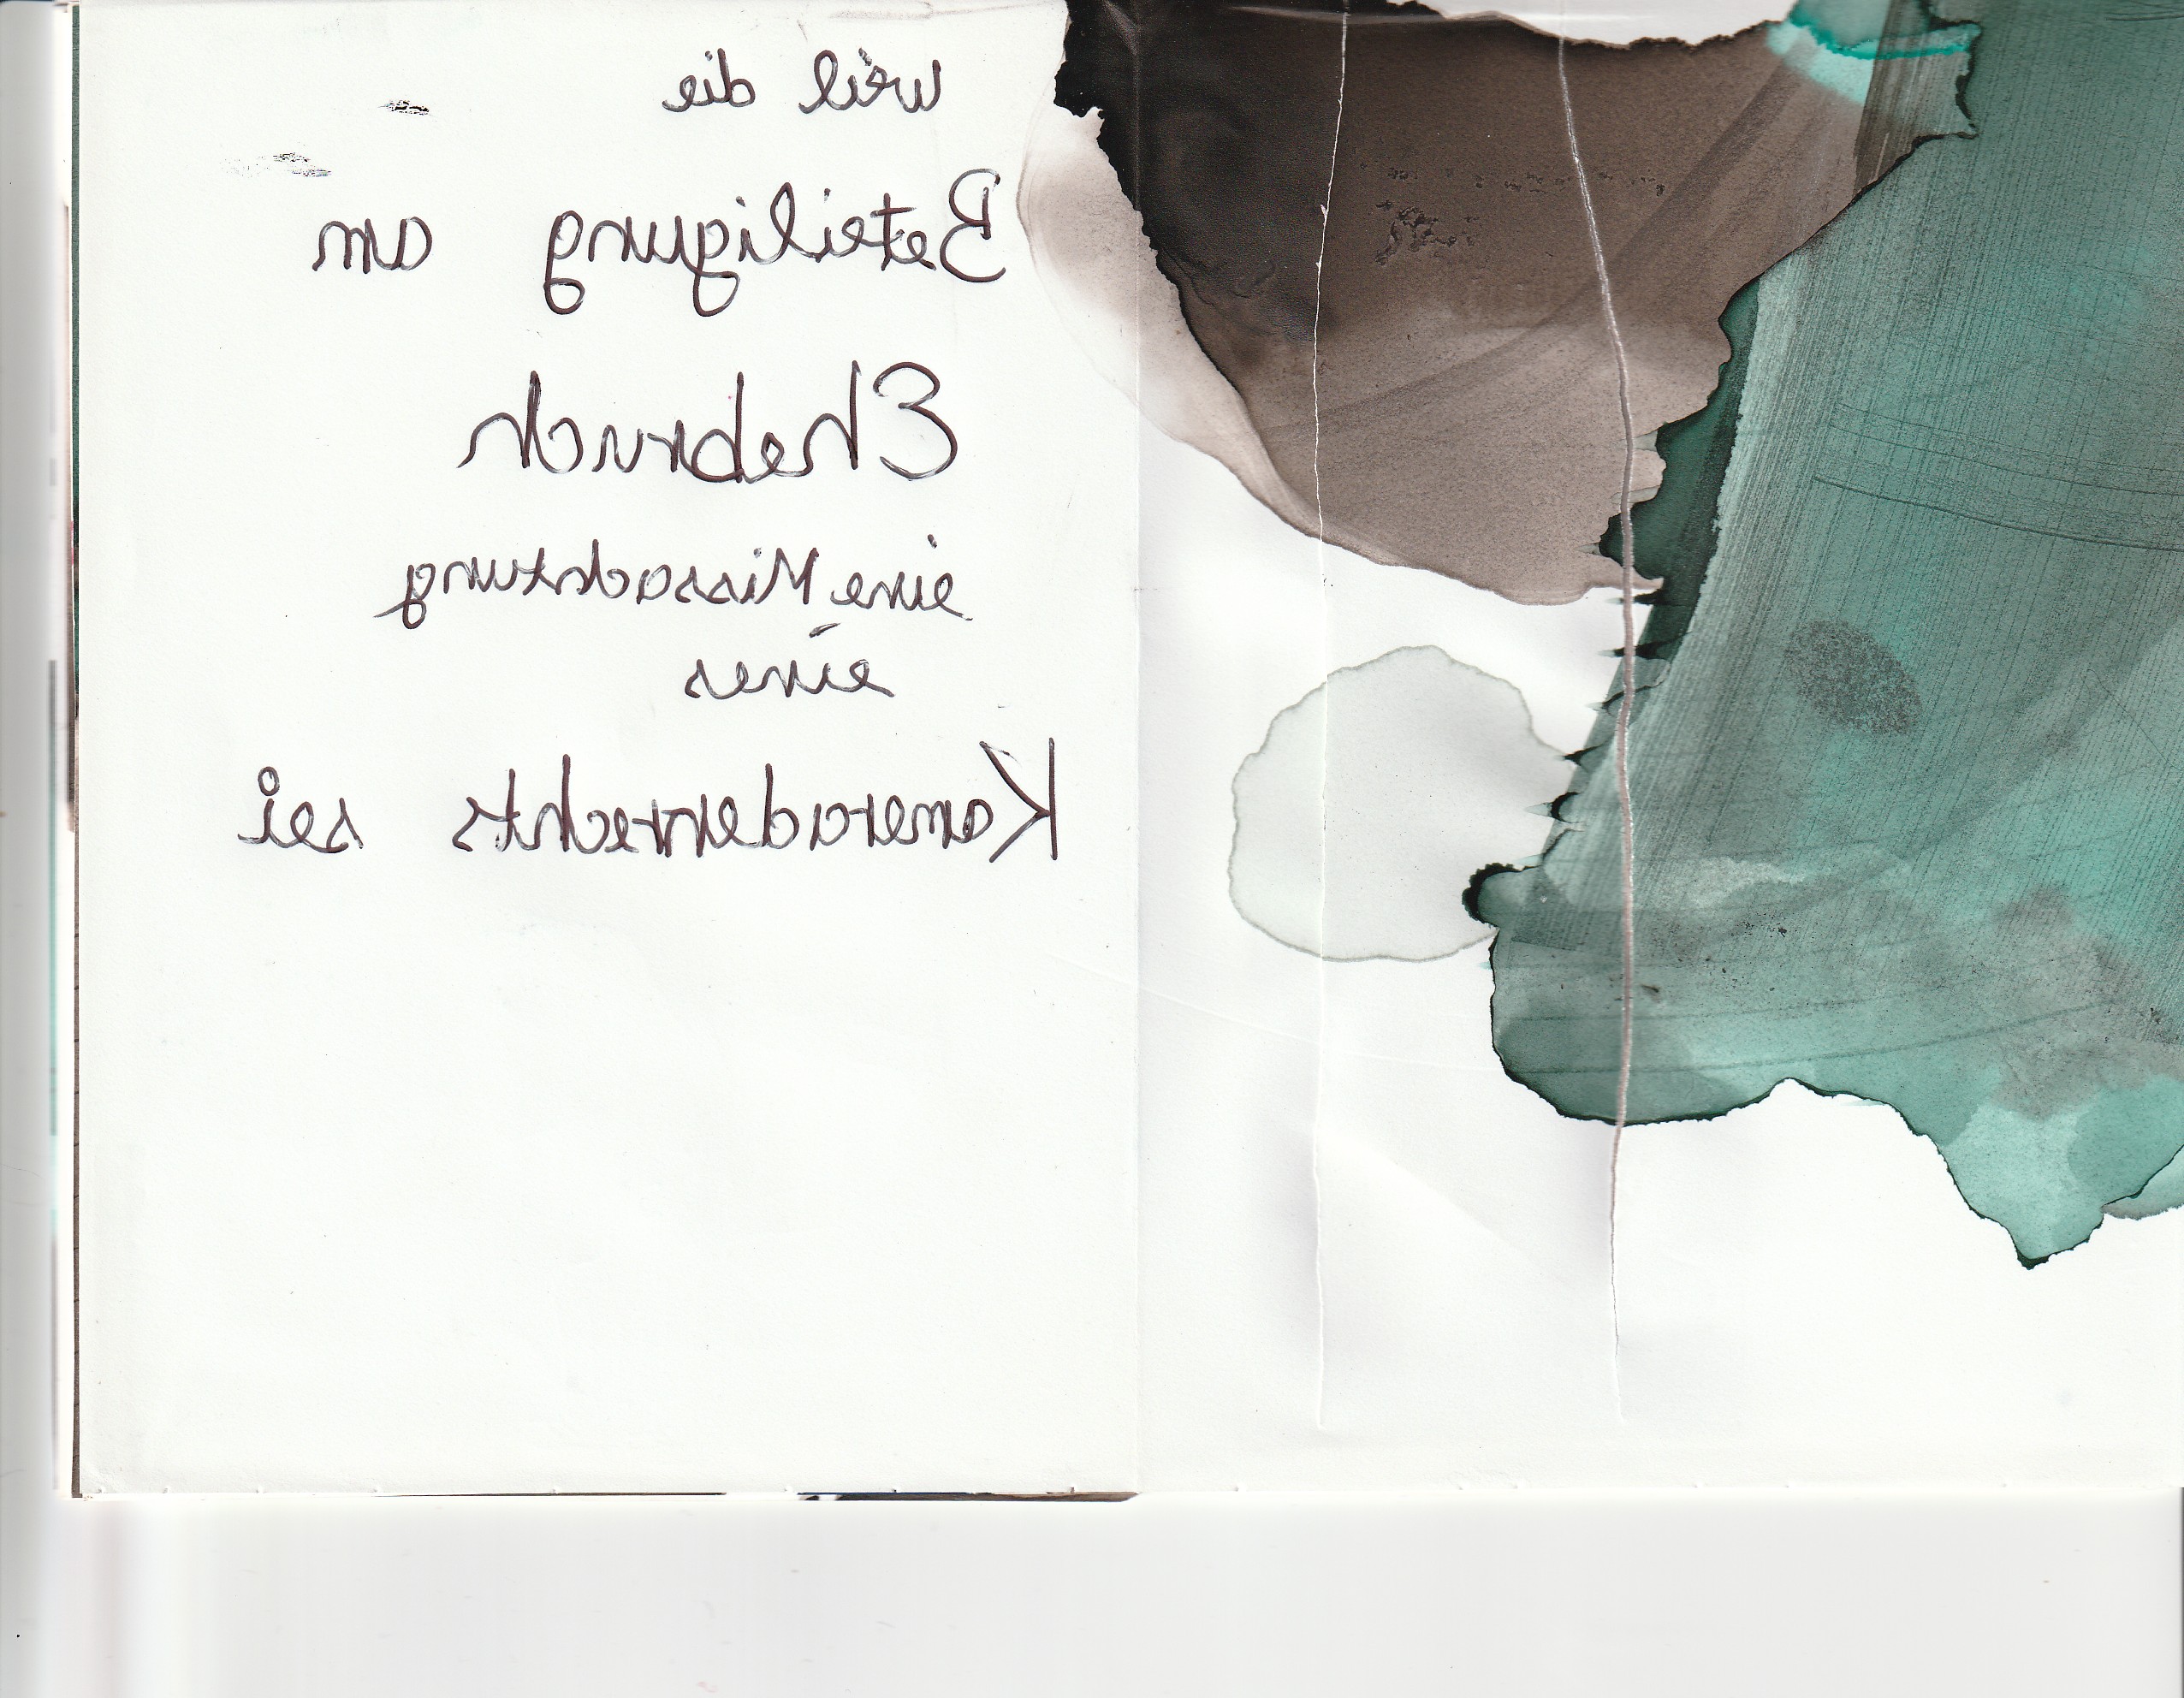 weil die
Beteiligung am
Ehebruch
eine Missachtung
eines
Kameradenrechts sei